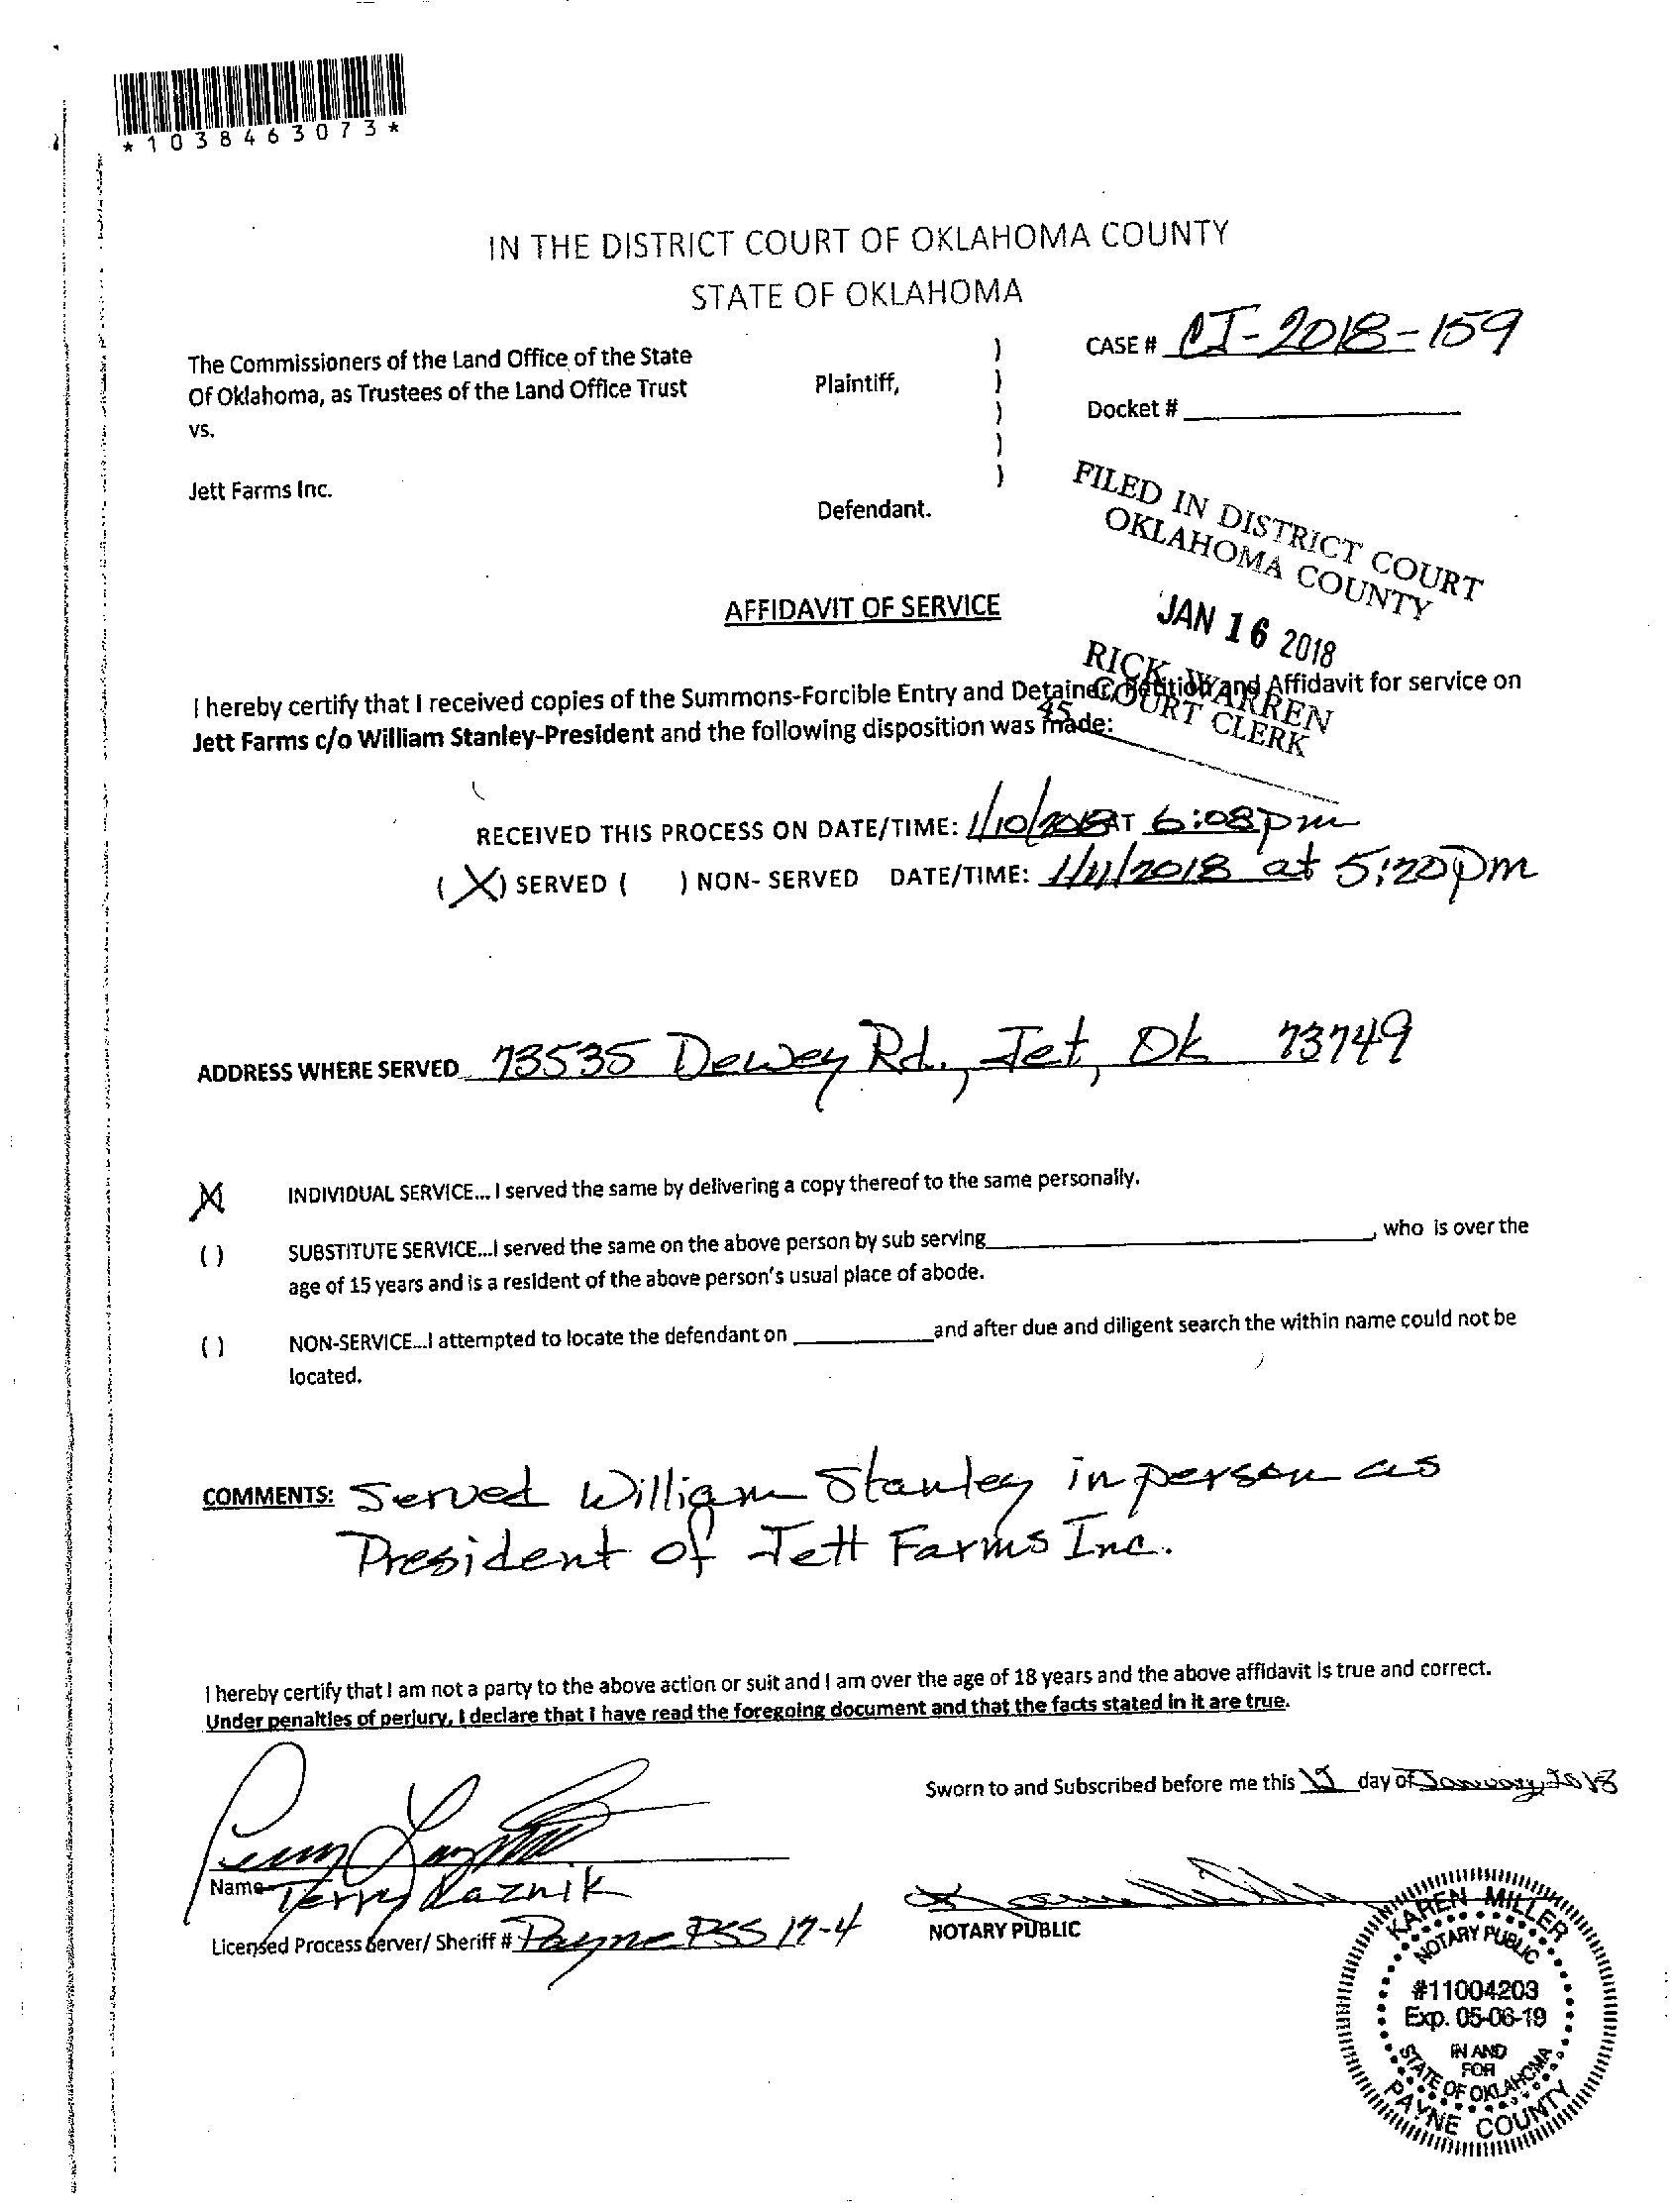 *1038463073*
IN THE DISTRICT COURT OF OKLAHOMA COUNTY
STATE OF OKLAHOMA
The Commissioners of the Land Office of the State
Of Oklahoma, as Trustees of the Land Office Trust
Plaintiff,
vs.
Jett Farms Inc.
Defendant.
)
)
)
)
)
CASE # CJ-2018-159
Docket #
FILED IN DISTRICT COURT
OKLAHOMA COUNTY
JAN 16 2018
RICK WARREN
COURT CLERK
45
AFFIDAVIT OF SERVICE
I hereby certify that I received copies of the Summons-Forcible Entry and Detainer, Petition and Affidavit for service on
Jett Farms c/o William Stanley-President and the following disposition was made:
RECEIVED THIS PROCESS ON DATE/TIME: 1/10/2018 AT 6:08pm
(X) SERVED ( ) NON- SERVED DATE/TIME: 1/11/2018 at 5:20pm
ADDRESS WHERE SERVED 73535 Dewey Rd., Jet, Ok 73749
X INDIVIDUAL SERVICE... I served the same by delivering a copy thereof to the same personally.
( ) SUBSTITUTE SERVICE...I served the same on the above person by sub serving , who is over the
age of 15 years and is a resident of the above person's usual place of abode.
( ) NON-SERVICE...I attempted to locate the defendant on and after due and diligent search the within name could not be
located.
COMMENTS: Served William Stanley in person as
President of Jett Farms Inc.
I hereby certify that I am not a party to the above action or suit and I am over the age of 18 years and the above affidavit is true and correct.
Under penalties of perjury, I declare that I have read the foregoing document and that the facts stated in it are true.
Sworn to and Subscribed before me this day of January, 2018
Name Terry Laznik
Licensed Process Server/ Sheriff # Payne PSS 17-4
NOTARY PUBLIC
KAREN MILLER
NOTARY PUBLIC
#11004203
Exp. 05-06-19
IN AND
FOR
STATE OF OKLAHOMA
PAYNE COUNTY